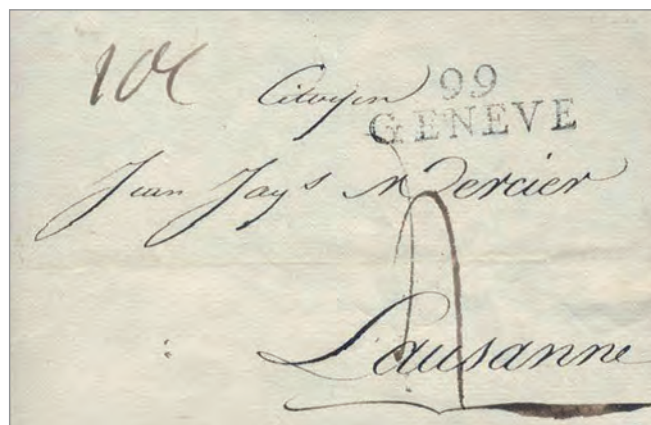 Citoyen 99
GENEVE
Jean Jaq.s Mercier
Lausanne